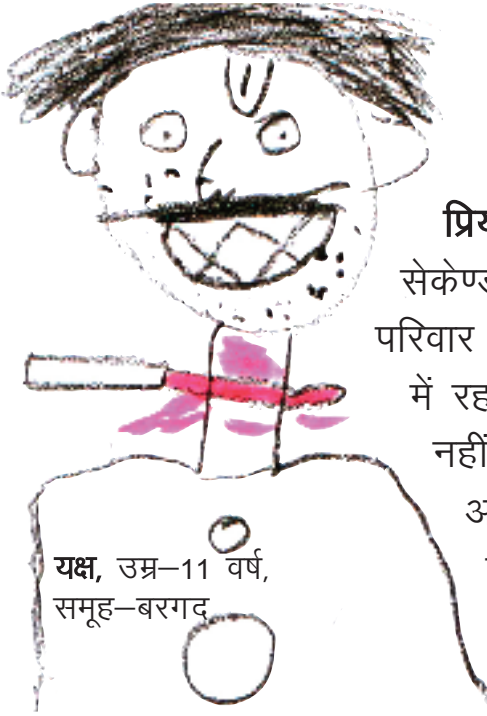 सेकेण्ड
परिवार
में रह
नहीं
यक्ष, उम्र–11 वर्ष,
समूह–बरगद